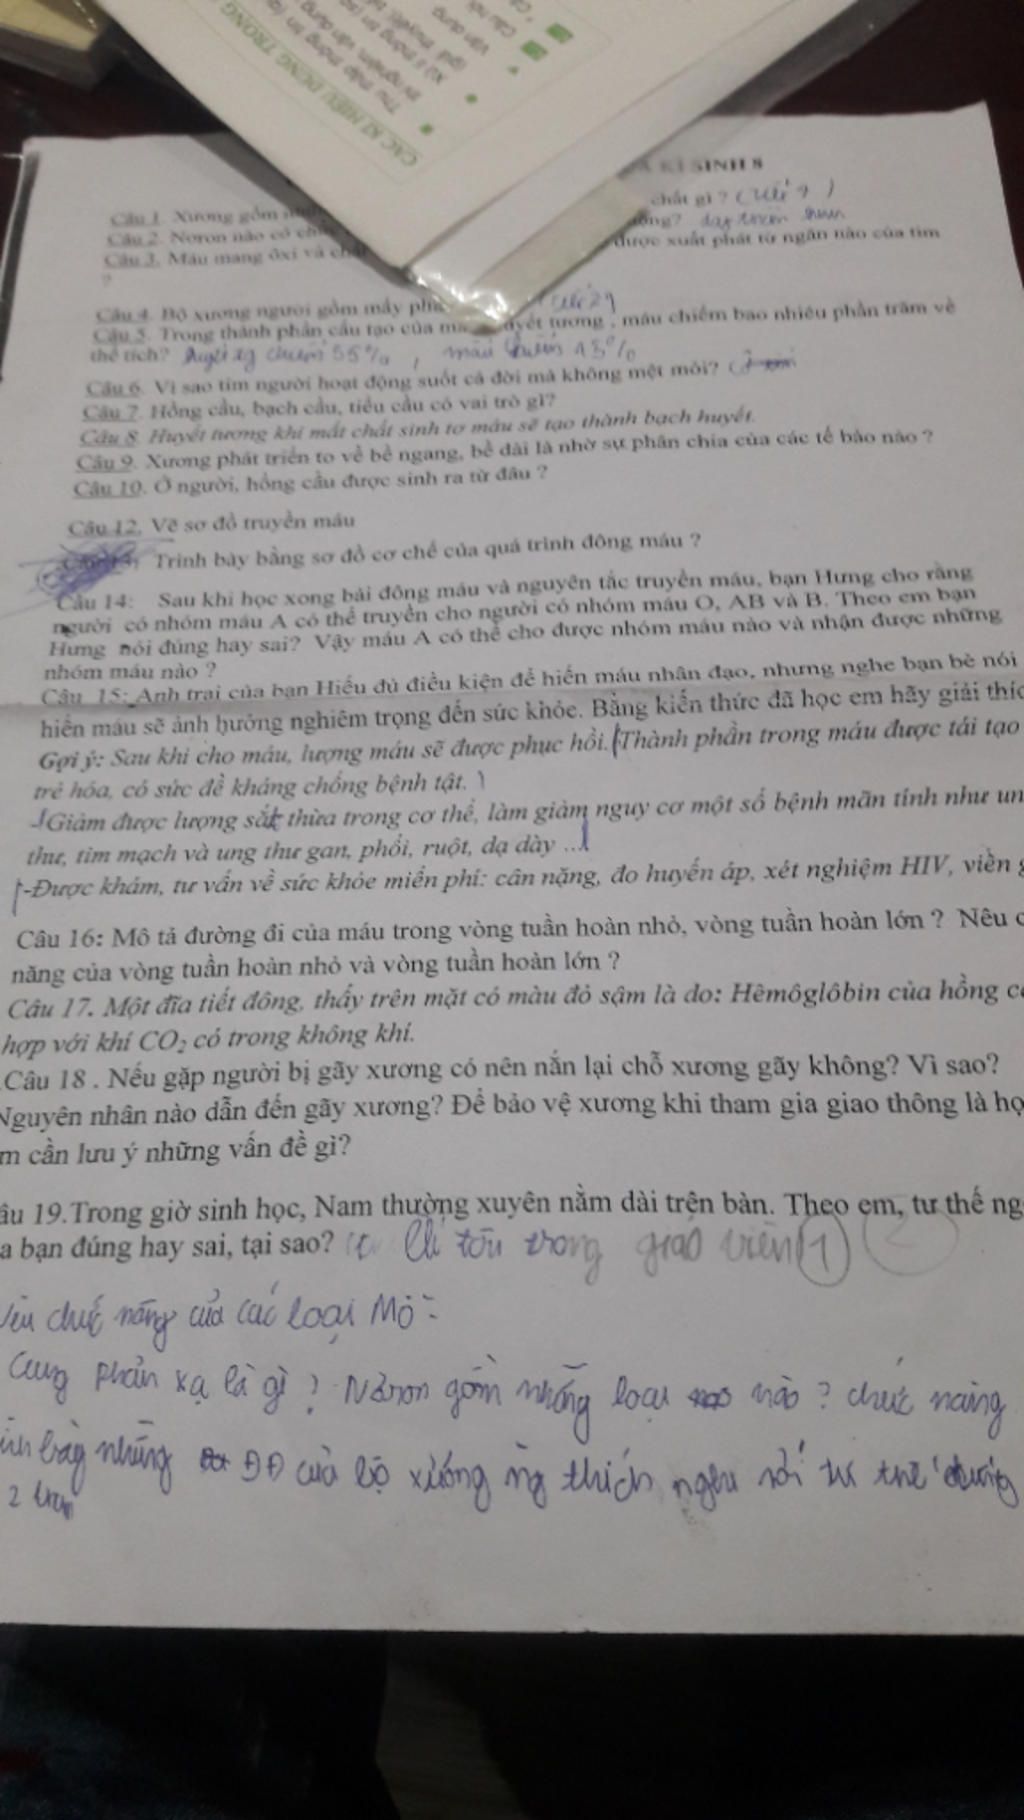 CÁC KÍ HIỆU DÙNG TRONG
Thu thập thông tin
KÌ SINH 8
Câu 1. Xương gồm chất gì ?
Câu 2. Nơron nào có
Câu 3. Máu mang ôxi và được xuất phát từ ngăn nào của tim
?
Câu 4. Bộ xương người gồm mấy
Câu 5. Trong thành phần cấu tạo của huyết tương , máu chiếm bao nhiêu phần trăm về
thể tích? chiếm 55% , máu chiếm 45%
Câu 6. Vì sao tim người hoạt động suốt cả đời mà không mệt mỏi?
Câu 7. Hồng cầu, bạch cầu, tiểu cầu có vai trò gì?
Câu 8. Huyết tương khi mất chất sinh tơ máu sẽ tạo thành bạch huyết.
Câu 9. Xương phát triển to về bề ngang, bề dài là nhờ sự phân chia của các tế bào nào ?
Câu 10. Ở người, hồng cầu được sinh ra từ đâu ?
Câu 12. Vẽ sơ đồ truyền máu
Trình bày bằng sơ đồ cơ chế của quá trình đông máu ?
Câu 14: Sau khi học xong bài đông máu và nguyên tắc truyền máu, bạn Hưng cho rằng
người có nhóm máu A có thể truyền cho người có nhóm máu O, AB và B. Theo em bạn
Hưng nói đúng hay sai? Vậy máu A có thể cho được nhóm máu nào và nhận được những
nhóm máu nào ?
Câu 15: Anh trai của bạn Hiếu đủ điều kiện để hiến máu nhân đạo, nhưng nghe bạn bè nói
hiến máu sẽ ảnh hưởng nghiêm trọng đến sức khỏe. Bằng kiến thức đã học em hãy giải thíc
Gợi ý: Sau khi cho máu, lượng máu sẽ được phục hồi. Thành phần trong máu được tái tạo
trẻ hóa, có sức đề kháng chống bệnh tật.
-Giảm được lượng sắt thừa trong cơ thể, làm giảm nguy cơ một số bệnh mãn tính như un
thư, tim mạch và ung thư gan, phổi, ruột, dạ dày ...
-Được khám, tư vấn về sức khỏe miễn phí: cân nặng, đo huyến áp, xét nghiệm HIV, viền g
Câu 16: Mô tả đường đi của máu trong vòng tuần hoàn nhỏ, vòng tuần hoàn lớn ? Nêu c
năng của vòng tuần hoàn nhỏ và vòng tuần hoàn lớn ?
Câu 17. Một đĩa tiết đông, thấy trên mặt có màu đỏ sậm là do: Hêmôglôbin của hồng c
hợp với khí CO₂ có trong không khí.
Câu 18 . Nếu gặp người bị gãy xương có nên nắn lại chỗ xương gãy không? Vì sao?
Nguyên nhân nào dẫn đến gãy xương? Để bảo vệ xương khi tham gia giao thông là họ
m cần lưu ý những vấn đề gì?
âu 19.Trong giờ sinh học, Nam thường xuyên nằm dài trên bàn. Theo em, tư thế ng
a bạn đúng hay sai, tại sao? trong giáo viên 1 2
chức năng của các loại Mô
Cung phản xạ là gì ? Nơron gồm những loại nào ? chức năng
những ĐĐ của bộ xương ng thích nghi với tư thế đứng
2